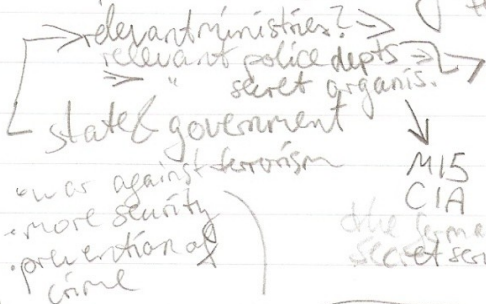 relevant ministries?
relevant police depts
" secret organis.
state & government
war against terrorism
more security
prevention of
crime
MI5
CIA
the
secret